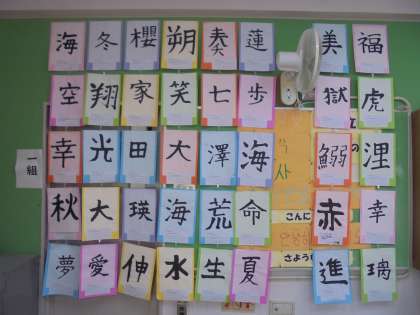 海 冬 櫻 朔 奏 蓮 美 福
空 翔 家 笑 七 歩 獄 虎
幸 光 田 大 澤 海 鰯 浬
秋 大 瑛 海 荒 命 赤 幸
夢 愛 伸 水 生 夏 進 璃
一組
사
こんに
さよう